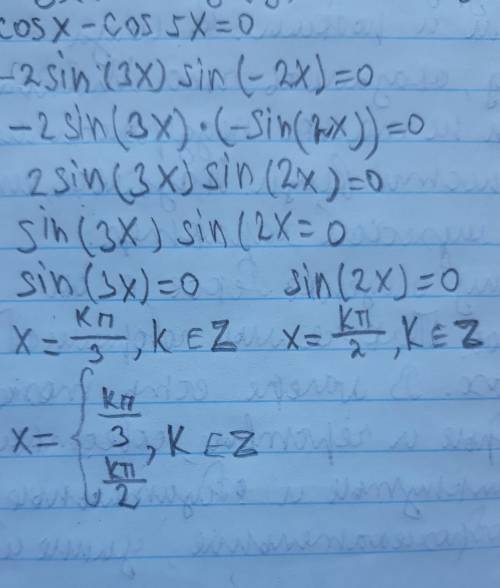 cosx-cos5x=0
-2sin(3x)sin(-2x)=0
-2sin(3x)·(-sin(2x))=0
2sin(3x)sin(2x)=0
sin(3x)sin(2x=0
sin(3x)=0 sin(2x)=0
x=kπ/3, k∈Z x=kπ/2, k∈Z
x={kπ/3
kπ/2, k∈Z